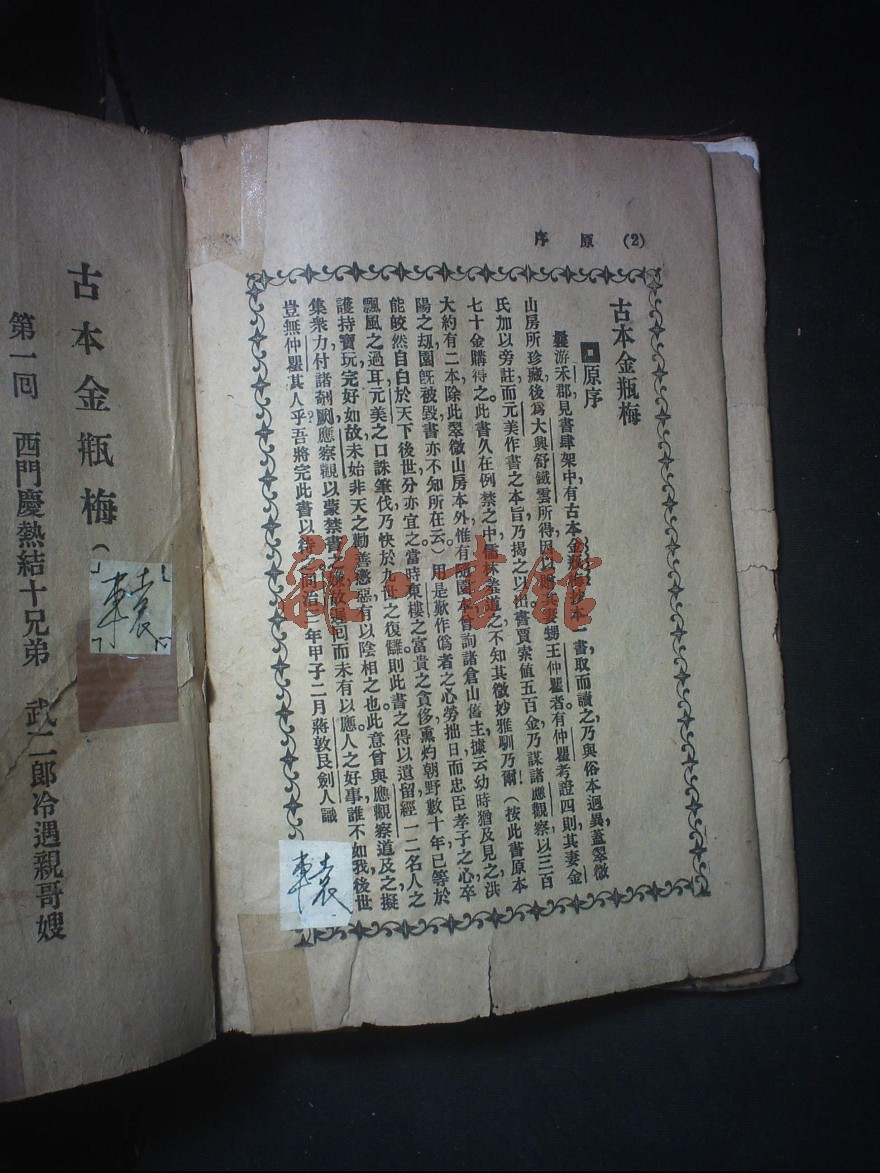 (2) 原序
古本金瓶梅
原序
曩游禾郡，見書肆架中，有古本金瓶梅抄本一書，取而讀之，乃與俗本迥異，蓋翠微
山房所珍藏，後爲大興舒鐵雲所得，因以贈其妻甥王仲瞿者。有仲瞿考證四則，其妻金
氏加以旁註，而元美作書之本旨，乃揭之以出。書賈索值五百金，乃謀諸應觀察，以三百
七十金購得之。此書久在例禁之中，儒林羞道之，不知其微妙雅馴乃爾！（按此書原本
大約有二本，除此翠微山房本外，惟有隨園本，曾詢諸倉山舊主，據云幼時猶及見之，洪
陽之刼，園旣被毀，書亦不知所在云。）用是歎作僞者之心勞拙日，而忠臣孝子之心，卒
能皎然自白於天下後世，分亦宜之。當時東樓之富貴之貪侈，熏灼朝野，數十年已等於
飄風之過耳，元美之口誅筆伐，乃快於九世之復讎，則此書之得以遺留，經一二名人之
護持寶玩，完好如故，未始非天之勸善懲惡，有以陰相之也。此意曾與應觀察道及之，擬
集衆力，付諸剞劂，應察觀以蒙禁書之嫌，故遲回而未有以應。人之好事，誰不如我，後世
豈無仲瞿其人乎？吾將完此書以待。同治三年甲子二月蔣敦艮劍人識
古本金瓶梅（
第一回 西門慶熱結十兄弟 武二郎冷遇親哥嫂
轅
轅